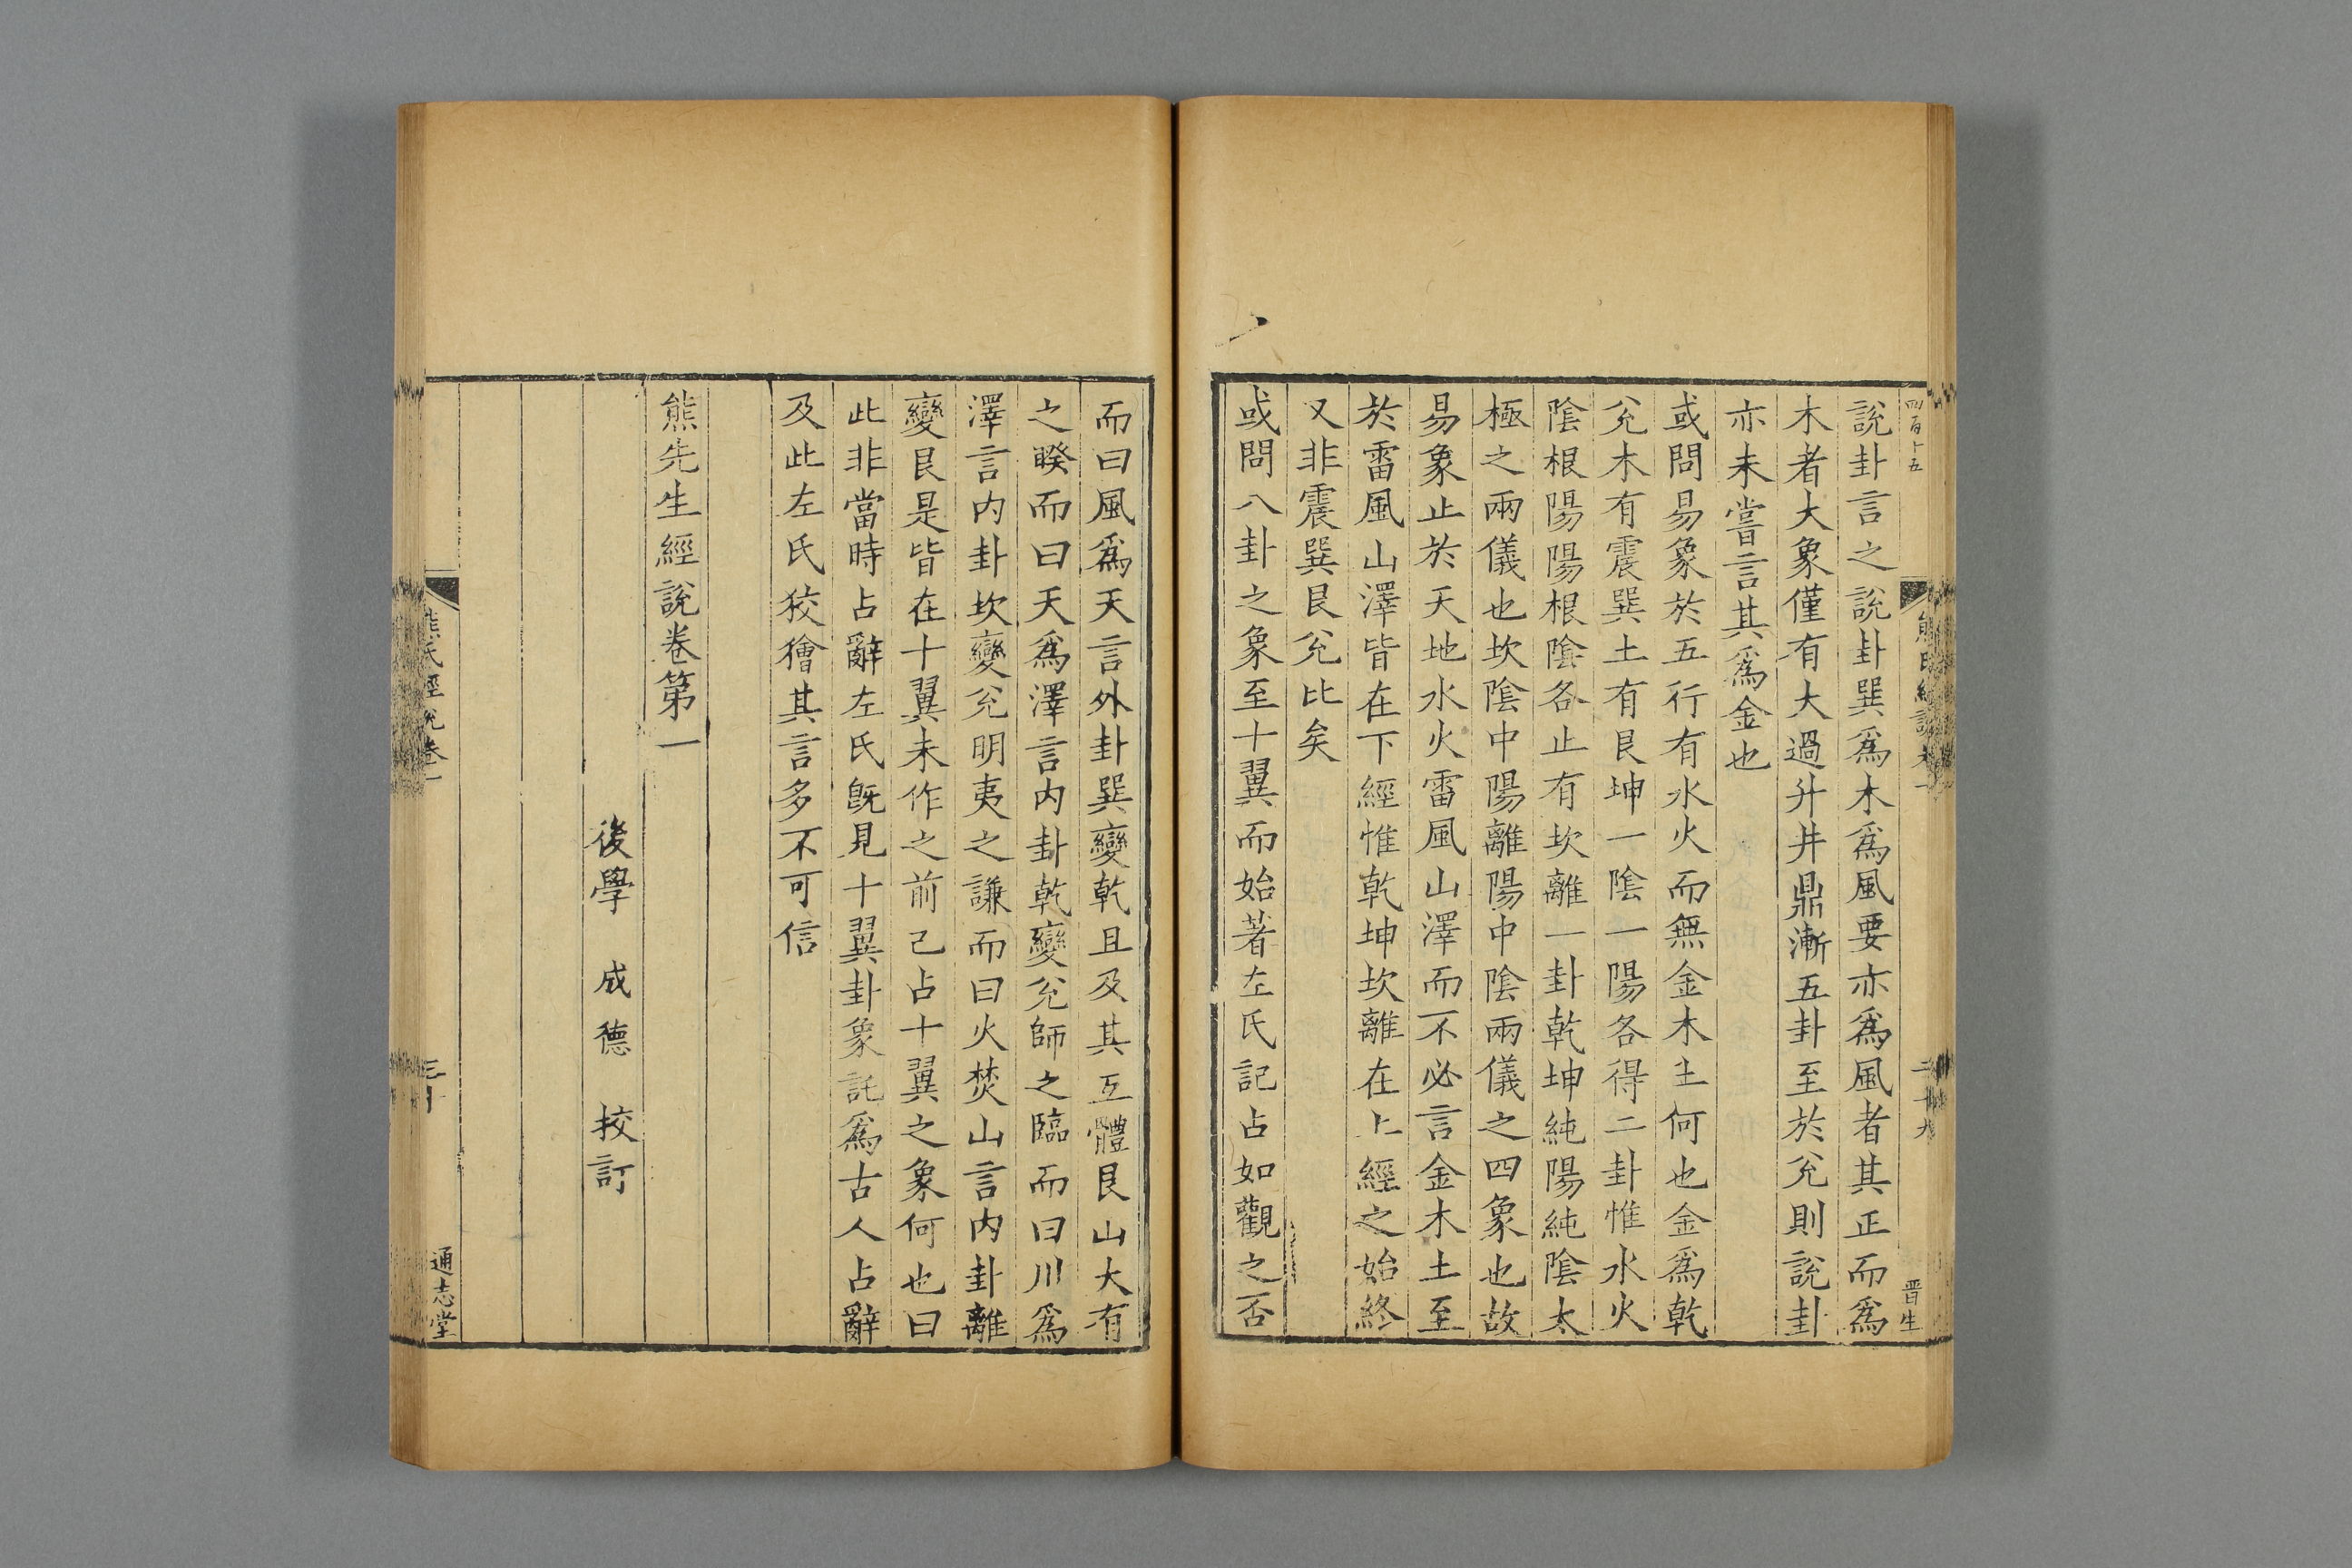 四百十五
晋生
說卦言之說卦巽爲木爲風要亦爲風者其正而爲
木者大象僅有大過升井鼎漸五卦至於兊則說卦
亦未嘗言其爲金也
或問易象於五行有水火而無金木土何也金爲乾
兊木有震巽土有艮坤一陰一陽各得二卦惟水火
陰根陽陽根陰各止有坎離一卦乾坤純陽純陰太
極之兩儀也坎陰中陽離陽中陰兩儀之四象也故
易象止於天地水火雷風山澤而不必言金木土至
於雷風山澤皆在下經惟乾坤坎離在上經之始終
又非震巽艮兊比矣
或問八卦之象至十翼而始著左氏記占如觀之否
而曰風爲天言外卦巽變乾且及其互體艮山大有
之睽而曰天爲澤言内卦乾變兊師之臨而曰川爲
澤言内卦坎變兊明夷之謙而曰火焚山言内卦離
變艮是皆在十翼未作之前已占十翼之象何也曰
此非當時占辭左氏旣見十翼卦象託爲古人占辭
及此左氏狡獪其言多不可信
熊先生經說卷第一
後學 成德 挍訂
熊氏經說卷一
通志堂